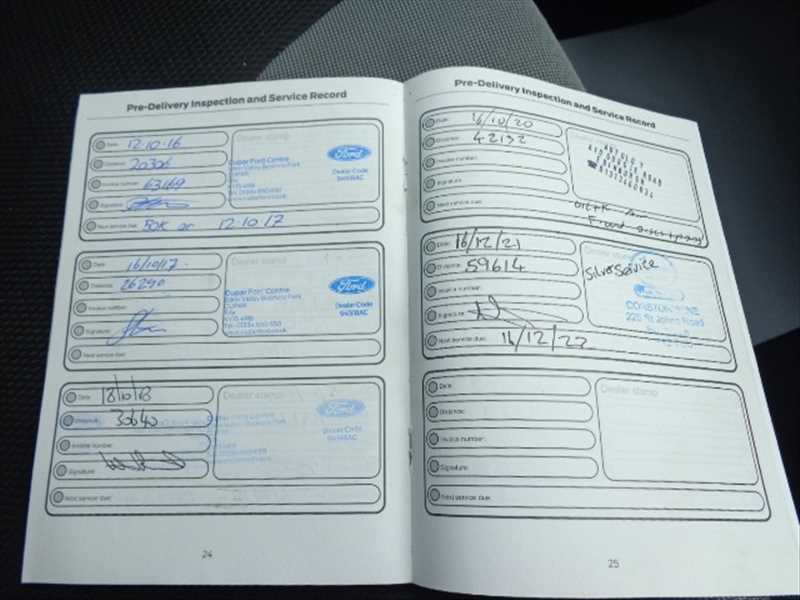 Pre-Delivery Inspection and Service Record
Date: 12.10.16
Distance: 20306
Invoice number: 63169
Signature:
Next service due: 30K or 12.10.17
Dealer stamp
Cupar Ford Centre
CUPAR
Fife
Ford
Dealer Code
Date: 16/10/17.
Distance: 26290
Invoice number:
Signature:
Next service due:
Dealer stamp
Cupar Ford Centre
CUPAR
Fife
Ford
Dealer Code
Date: 18/10/18
Distance: 30640
Invoice number:
Signature:
Next service due:
Dealer stamp
Ford
Dealer Code
24
Pre-Delivery Inspection and Service Record
Date: 16/10/20
Distance: 42132
Invoice number:
Signature:
Next service due:
Dealer stamp
Date: 16/12/21
Distance: 59614
Invoice number:
Signature:
Next service due: 16/12/22
Silver Service
225 St Johns Road
Date:
Distance:
Invoice number:
Signature:
Next service due:
Dealer stamp
25